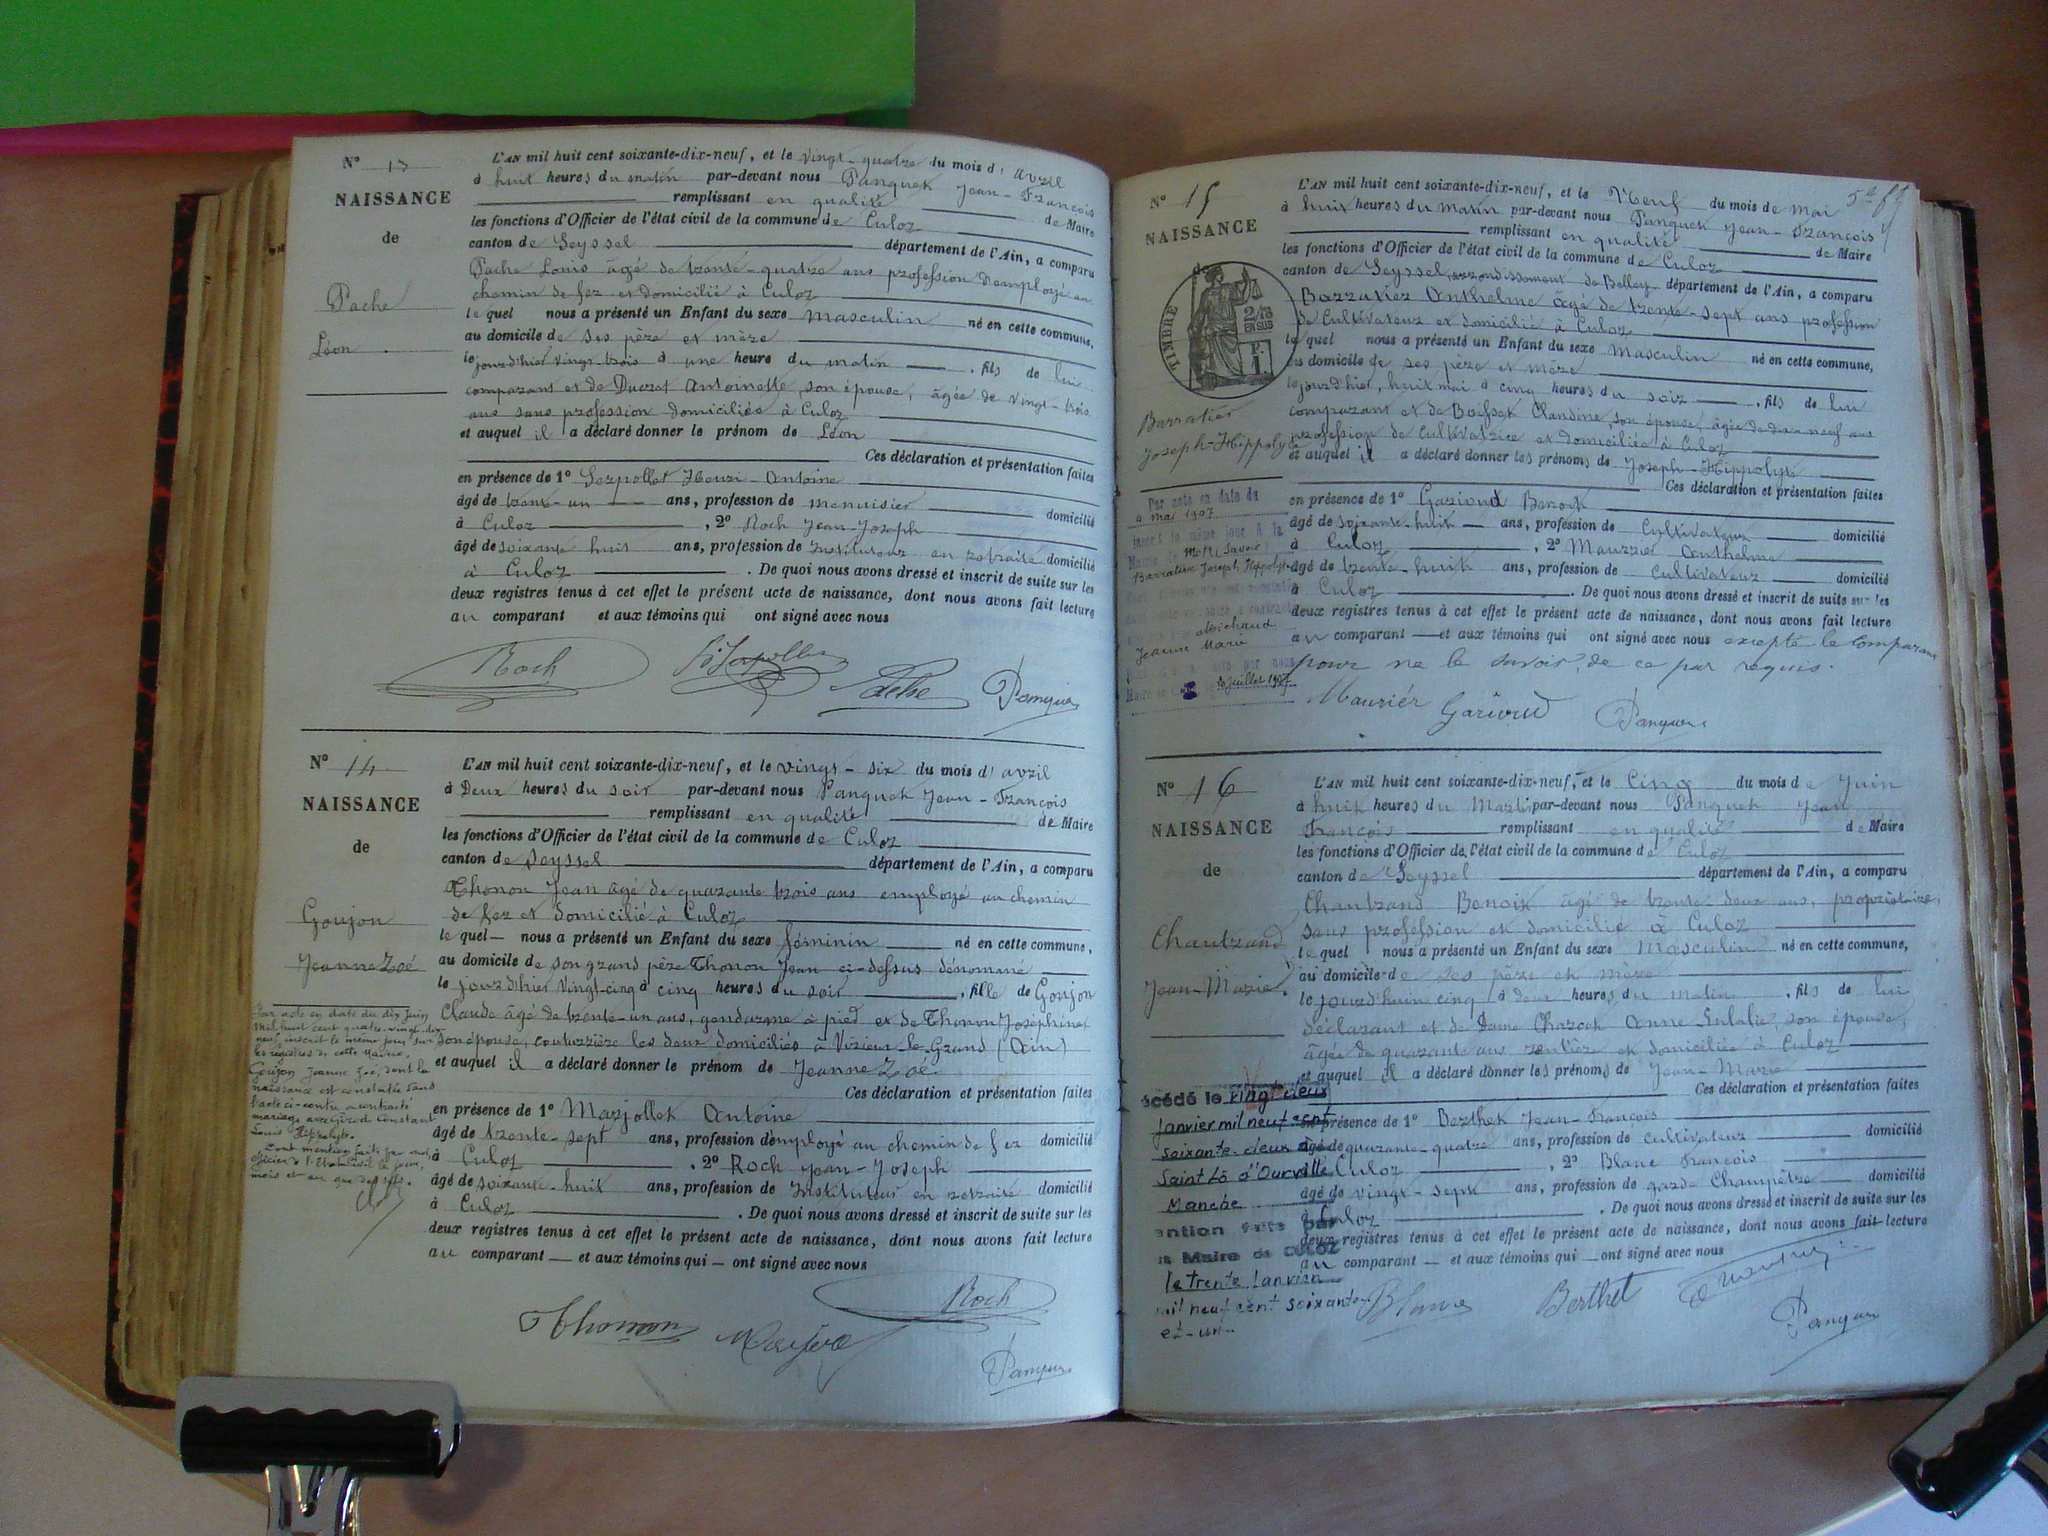 N° 13
NAISSANCE
de
Pache
Léon
L'AN mil huit cent soixante-dix-neuf, et le vingt-quatre du mois d'avril
à huit heures du matin par-devant nous Panquet Jean-François
remplissant en qualité de Maire
les fonctions d'Officier de l'état civil de la commune de Culoz
canton de Seyssel département de l'Ain, a comparu
Pache Louis âgé de trente-quatre ans profession d'employé au
chemin de fer et domicilié à Culoz
le quel nous a présenté un Enfant du sexe masculin né en cette commune,
au domicile de ses père et mère
le jourd'hier vingt-trois à une heure du matin, fils de lui
comparant et de Ducret Antoinette, son épouse, âgée de vingt-trois
ans sans profession domiciliés à Culoz
et auquel il a déclaré donner le prénom de Léon
Ces déclaration et présentation faites
en présence de 1° Serpollet Henri-Antoine
âgé de trente-un ans, profession de menuisier domicilié
à Culoz, 2° Roch Jean-Joseph
âgé de soixante huit ans, profession de Instituteur en retraite domicilié
à Culoz. De quoi nous avons dressé et inscrit de suite sur les
deux registres tenus à cet effet le présent acte de naissance, dont nous avons fait lecture
au comparant et aux témoins qui ont signé avec nous
Roch Pache Panquet
N° 14
NAISSANCE
de
Goujon
Jeanne Zoé
Par acte en date du dix Juin
mil huit cent quatre-vingt-dix
neuf, inscrit le même jour sur
les registres de cette Mairie,
Goujon Jeanne Zoé, dont la
naissance est constatée dans
l'acte ci-contre a contracté
mariage avec Constant
Louis Hippolyte.
Dont mention faite par nous
officier de l'Etat civil les jour,
mois et an que dessus.
L'AN mil huit cent soixante-dix-neuf, et le vingt-six du mois d'avril
à Deux heures du soir par-devant nous Panquet Jean-François
remplissant en qualité de Maire
les fonctions d'Officier de l'état civil de la commune de Culoz
canton de Seyssel département de l'Ain, a comparu
Thonon Jean âgé de quarante trois ans employé au chemin
de fer et domicilié à Culoz
le quel nous a présenté un Enfant du sexe féminin né en cette commune,
au domicile de son grand père Thonon Jean ci-dessus dénommé
le jourd'hier vingt-cinq à cinq heures du soir, fille de Goujon
Claude âgé de trente-un ans, gendarme à pied et de Thonon Joséphine
son épouse, couturrière les deux domiciliés à Virieu-le-Grand (Ain)
et auquel il a déclaré donner le prénom de Jeanne Zoé.
Ces déclaration et présentation faites
en présence de 1° Marjollet Antoine
âgé de trente-sept ans, profession d'employé au chemin de fer domicilié
à Culoz, 2° Roch Jean-Joseph
âgé de soixante-huit ans, profession de Instituteur en retraite domicilié
à Culoz. De quoi nous avons dressé et inscrit de suite sur les
deux registres tenus à cet effet le présent acte de naissance, dont nous avons fait lecture
au comparant et aux témoins qui ont signé avec nous
Roch
Thonon
Panquet
N° 15
NAISSANCE
de
TIMBRE
2/10
EN SUS
Barratier
Joseph-Hippolyte
Par acte en date du
4 mai 1907
Barratier Joseph Hippolyte
Michaud
Jeanne Marie
juillet 1907
L'AN mil huit cent soixante-dix-neuf, et le Neuf du mois de mai
à huit heures du matin par-devant nous Panquet Jean-François
remplissant en qualité de Maire
les fonctions d'Officier de l'état civil de la commune de Culoz
canton de Seyssel, arrondissement de Belley département de l'Ain, a comparu
Barratier Anthelme âgé de trente-sept ans profession
de Cultivateur et domicilié à Culoz
le quel nous a présenté un Enfant du sexe masculin né en cette commune,
au domicile de ses père et mère
le jourd'hier, huit mai à cinq heures du soir, fils de lui
comparant et de Boisset Claudine, son épouse, âgée de
profession de Cultivatrice et domiciliée à Culoz
et auquel il a déclaré donner les prénoms de Joseph-Hippolyte
Ces déclaration et présentation faites
en présence de 1° Garioud Benoit
âgé de soixante-huit ans, profession de Cultivateur domicilié
à Culoz, 2° Maurrier Anthelme
âgé de trente-huit ans, profession de cultivateur domicilié
à Culoz. De quoi nous avons dressé et inscrit de suite sur les
deux registres tenus à cet effet le présent acte de naissance, dont nous avons fait lecture
au comparant et aux témoins qui ont signé avec nous excepté le comparant
pour ne le savoir, de ce par requis.
Maurier Garioud Panquet
N° 16
NAISSANCE
de
Chautrand
Jean-Marie
Décédé le vingt deux
janvier mil neuf cent
soixante-deux à
Saint Lô d'Ourville
Manche
mention faite par
le Maire de CULOZ
le trente Janvier
mil neuf cent soixante
et-un
L'AN mil huit cent soixante-dix-neuf, et le Cinq du mois de Juin
à huit heures du Matin par-devant nous Panquet Jean
François remplissant en qualité de Maire
les fonctions d'Officier de l'état civil de la commune de Culoz
canton de Seyssel département de l'Ain, a comparu
Chantrand Benoit âgé de trente-deux ans, propriétaire,
sans profession et domicilié à Culoz
le quel nous a présenté un Enfant du sexe masculin né en cette commune,
au domicile de ses père et mère
le jourd'huir cinq à deux heures du matin, fils de lui
déclarant et de Dame Anne Eulalie, son épouse,
âgée de quarante ans rentière et domiciliée à Culoz
et auquel il a déclaré donner les prénoms de Jean-Marie
Ces déclaration et présentation faites
en présence de 1° Berthet Jean-François
âgé de quarante-quatre ans, profession de cultivateur domicilié
à Culoz, 2° Blanc François
âgé de vingt-sept ans, profession de gard-Champêtre domicilié
à Culoz. De quoi nous avons dressé et inscrit de suite sur les
deux registres tenus à cet effet le présent acte de naissance, dont nous avons fait lecture
au comparant et aux témoins qui ont signé avec nous
Blanc Berthet
Panquet